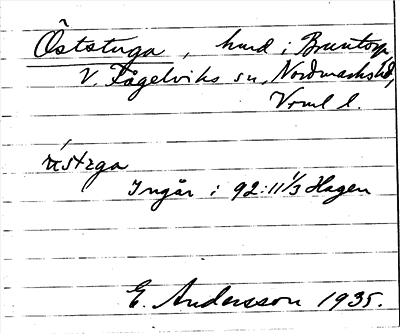 Öststuga, hmd i Bruntorp
V. Fågelviks sn, Nordmarks hd,
Vrml l.
Ingår i 92:11 1/3 Hagen
E. Andersson 1935.